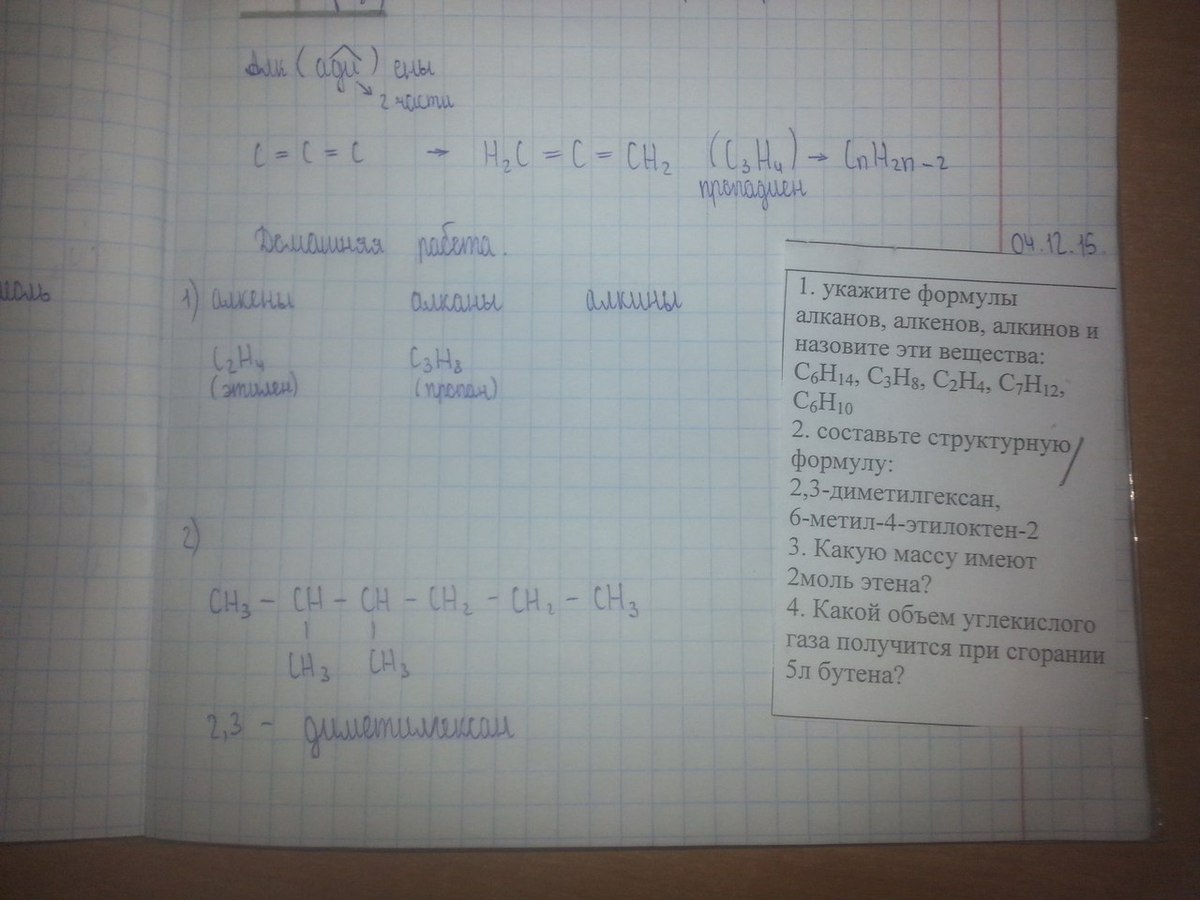 Алк (ади) ены
2 части
C = C = C → H₂C = C = CH₂ (C₃H₄) → CnH₂n-2
пропадиен
Домашняя работа.
04.12.15.
моль
1) алкены алканы алкины
C₂H₄ C₃H₈
(этилен) (пропан)
2)
CH₃ - CH - CH - CH₂ - CH₂ - CH₃
CH₃ CH₃
2,3 - диметилгексан
1. укажите формулы
алканов, алкенов, алкинов и
назовите эти вещества:
C₆H₁₄, C₃H₈, C₂H₄, C₇H₁₂,
C₆H₁₀
2. составьте структурную
формулу:
2,3-диметилгексан,
6-метил-4-этилоктен-2
3. Какую массу имеют
2моль этена?
4. Какой объем углекислого
газа получится при сгорании
5л бутена?